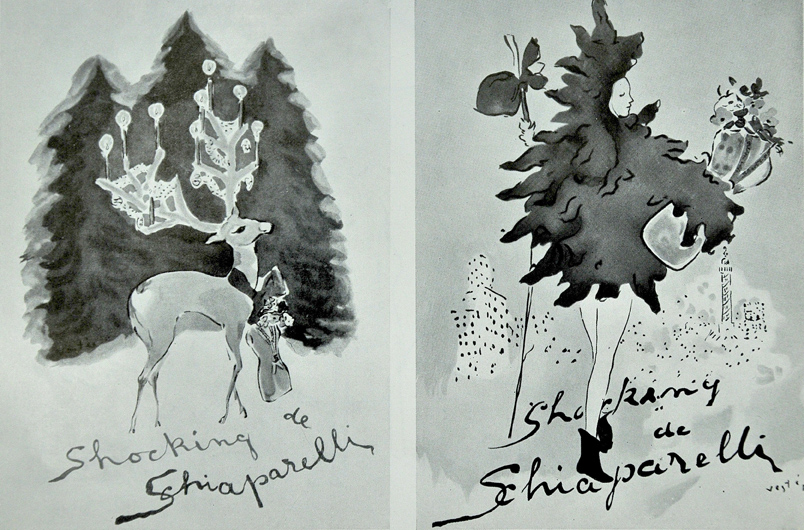 Shocking
de
Schiaparelli
Shocking
de
Schiaparelli